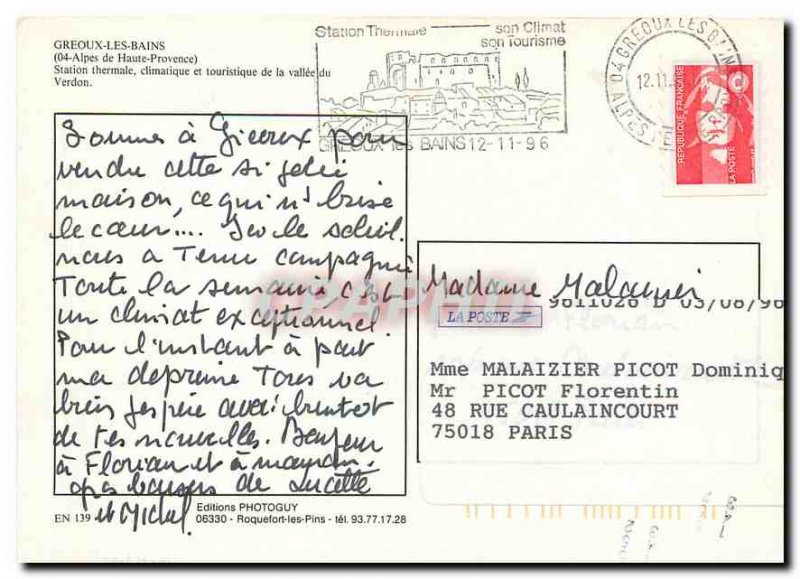 GREOUX-LES-BAINS
(04-Alpes de Haute-Provence)
Station thermale, climatique et touristique de la vallée du
Verdon.
Station Thermale son Climat
son Tourisme
GREOUX les BAINS 12-11-96
04 GREOUX LES BAINS
12.11.
REPUBLIQUE FRANÇAISE
LA POSTE
Sommes à Gréoux pour
vendre cette si jolie
maison, ce qui m'brise
le cœur.... Ici le soleil
nous a tenu compagnie
Toute la semaine c'est
un climat exceptionnel.
Pour l'instant à part
ma déprime tous va
bien j'espère avoir bientôt
de tes nouvelles. Bonjour
à Florian et à maman.
gros baisers de Lucette
et Michel
Madame
LA POSTE
Mme MALAIZIER PICOT Dominiq
Mr PICOT Florentin
48 RUE CAULAINCOURT
75018 PARIS
EN 139
Editions PHOTOGUY
06330 - Roquefort-les-Pins - tél. 93.77.17.28